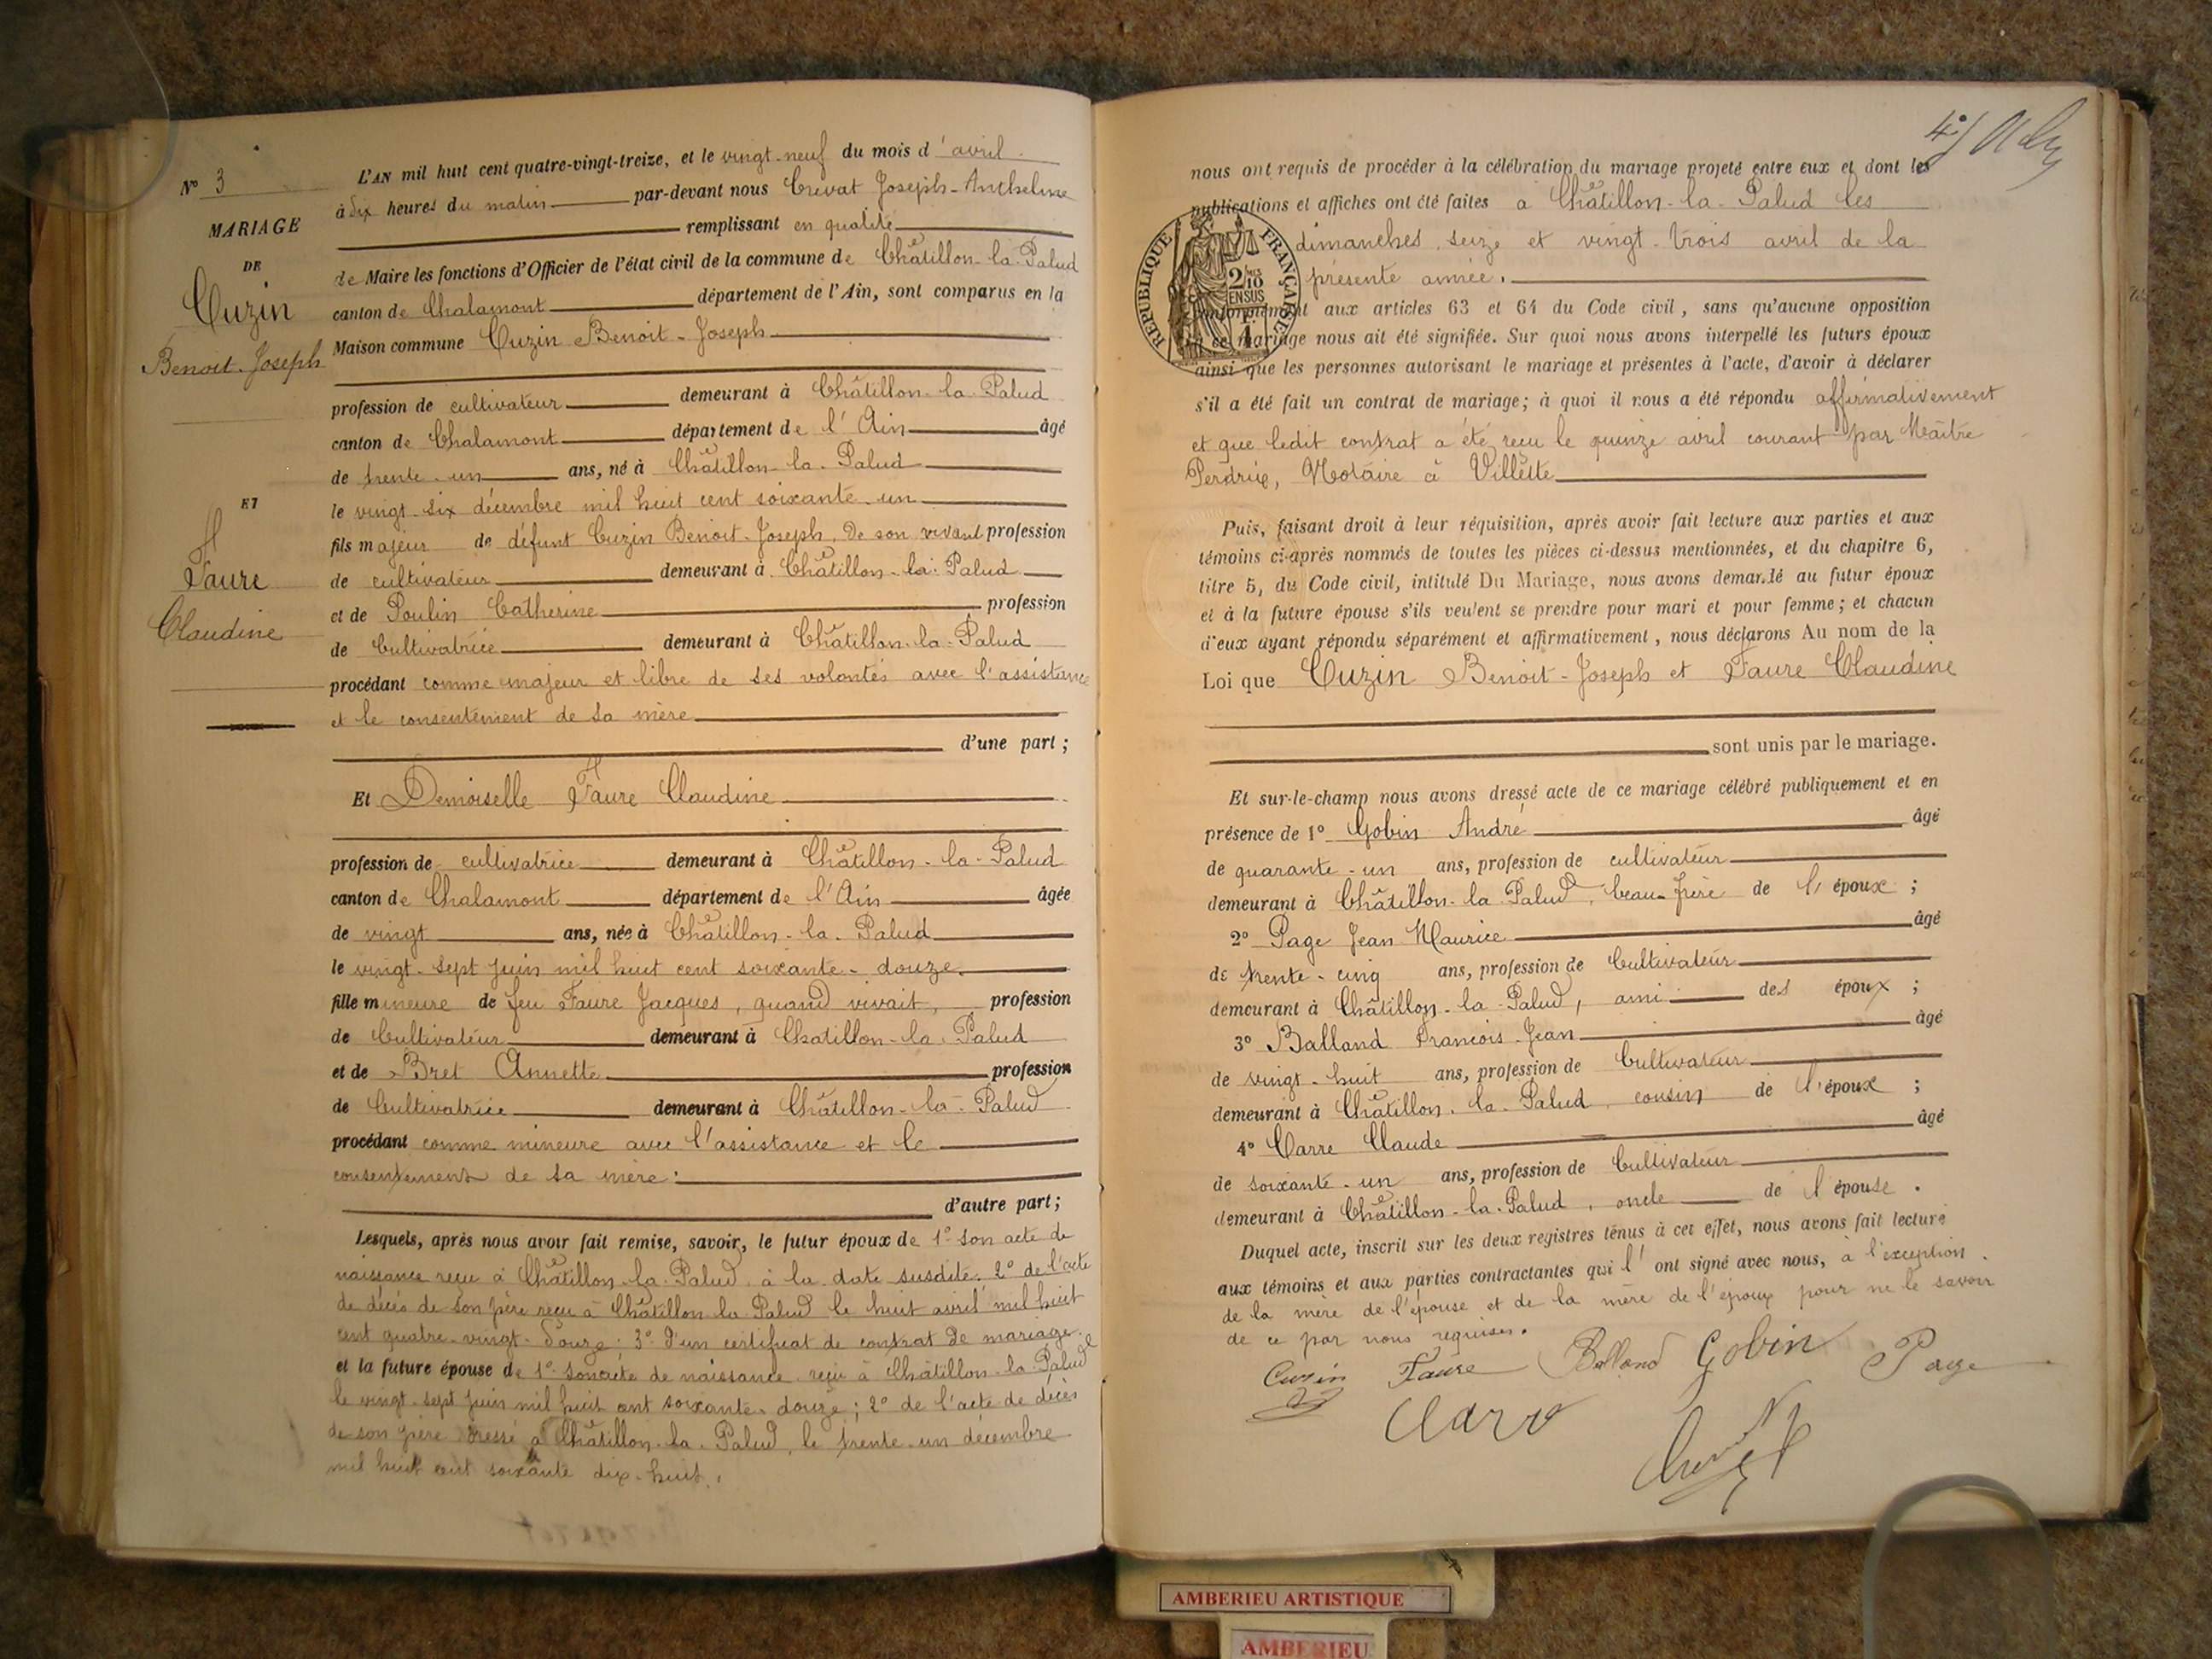 N° 3
MARIAGE
DE
Cuzin
Benoit-Joseph
ET
Faure
Claudine
L'AN mil huit cent quatre-vingt-treize, et le vingt-neuf du mois d'avril
à dix heures du matin par-devant nous Crevat Joseph-Anthelme
remplissant en qualité
de Maire les fonctions d'Officier de l'état civil de la commune de Châtillon-la-Palud
canton de Chalamont département de l'Ain, sont comparus en la
Maison commune Cuzin Benoit-Joseph
profession de cultivateur demeurant à Châtillon-la-Palud
canton de Chalamont département de l'Ain âgé
de trente-un ans, né à Châtillon-la-Palud
le vingt-six décembre mil huit cent soixante-un
fils majeur de défunt Cuzin Benoit-Joseph, de son vivant profession
de cultivateur demeurant à Châtillon-la-Palud
et de Poulin Catherine profession
de Cultivatrice demeurant à Châtillon-la-Palud
procédant comme majeur et libre de ses volontés avec l'assistance
et le consentement de sa mère
d'une part ;
Et Demoiselle Faure Claudine
profession de cultivatrice demeurant à Châtillon-la-Palud
canton de Chalamont département de l'Ain âgée
de vingt ans, née à Châtillon-la-Palud
le vingt-sept juin mil huit cent soixante-douze
fille mineure de feu Faure Jacques, quand vivait, profession
de Cultivateur demeurant à Chatillon-la-Palud
et de Bret Annette profession
de Cultivatrice demeurant à Châtillon-la-Palud
procédant comme mineure avec l'assistance et le
consentement de sa mère :
d'autre part ;
Lesquels, après nous avoir fait remise, savoir, le futur époux de 1° son acte de
naissance reçu à Châtillon-la-Palud à la date susdite. 2° de l'acte
de décès de son père reçu à Châtillon-la-Palud le huit avril mil huit
cent quatre-vingt-douze ; 3° d'un certificat de contrat de mariage.
et la future épouse de 1° son acte de naissance reçu à Châtillon-la-Palud
le vingt-sept juin mil huit cent soixante-douze ; 2° de l'acte de décès
de son père dressé à Châtillon-la-Palud, le trente-un décembre
mil huit cent soixante dix-huit.
nous ont requis de procéder à la célébration du mariage projeté entre eux et dont les
publications et affiches ont été faites à Châtillon-la-Palud les
dimanches seize et vingt-trois avril de la
présente année.
REPUBLIQUE FRANÇAISE
2/10 EN SUS
conformément aux articles 63 et 64 du Code civil, sans qu'aucune opposition
à ce mariage nous ait été signifiée. Sur quoi nous avons interpellé les futurs époux
ainsi que les personnes autorisant le mariage et présentes à l'acte, d'avoir à déclarer
s'il a été fait un contrat de mariage; à quoi il nous a été répondu affirmativement
et que ledit contrat a été reçu le quinze avril courant par Maître
Perdrix, Notaire à Villette
Puis, faisant droit à leur réquisition, après avoir fait lecture aux parties et aux
témoins ci-après nommés de toutes les pièces ci-dessus mentionnées, et du chapitre 6,
titre 5, du Code civil, intitulé Du Mariage, nous avons demandé au futur époux
et à la future épouse s'ils veulent se prendre pour mari et pour femme; et chacun
d'eux ayant répondu séparément et affirmativement, nous déclarons Au nom de la
Loi que Cuzin Benoit-Joseph et Faure Claudine
sont unis par le mariage.
Et sur-le-champ nous avons dressé acte de ce mariage célébré publiquement et en
présence de 1° Gobin André âgé
de quarante-un ans, profession de cultivateur
demeurant à Châtillon-la-Palud, beau-frère de l'époux ;
2° Page Jean Maurice âgé
de trente-cinq ans, profession de Cultivateur
demeurant à Châtillon-la-Palud, ami des époux ;
3° Balland Francois-Jean âgé
de vingt-huit ans, profession de Cultivateur
demeurant à Châtillon-la-Palud, cousin de l'époux ;
4° Carre Claude âgé
de soixante-un ans, profession de Cultivateur
demeurant à Châtillon-la-Palud, oncle de l'épouse.
Duquel acte, inscrit sur les deux registres tenus à cet effet, nous avons fait lecture
aux témoins et aux parties contractantes qui l'ont signé avec nous, à l'exception
de la mère de l'épouse et de la mère de l'époux pour ne le savoir
de ce par nous requises.
Cuzin Faure Balland Gobin Page
Carre
Crevat
AMBERIEU ARTISTIQUE
AMBERIEU